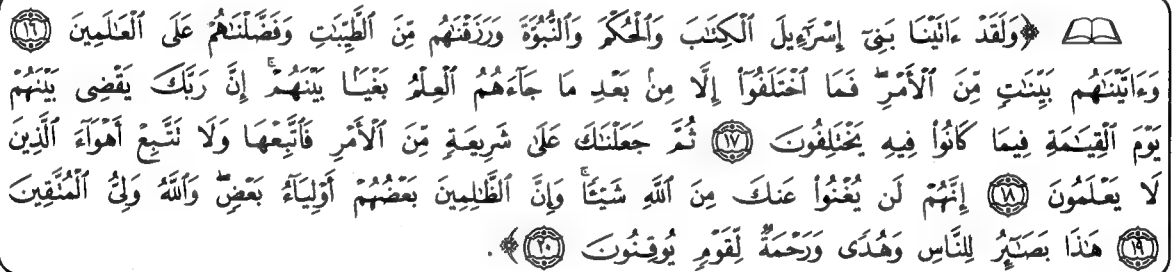 ﴿وَلَقَدْ ءَاتَيْنَا بَنِىٓ إِسْرَٰٓءِيلَ ٱلْكِتَٰبَ وَٱلْحُكْمَ وَٱلنُّبُوَّةَ وَرَزَقْنَٰهُم مِّنَ ٱلطَّيِّبَٰتِ وَفَضَّلْنَٰهُمْ عَلَى ٱلْعَٰلَمِينَ ١٦
وَءَاتَيْنَٰهُم بَيِّنَٰتٍ مِّنَ ٱلْأَمْرِۖ فَمَا ٱخْتَلَفُوٓا۟ إِلَّا مِنۢ بَعْدِ مَا جَآءَهُمُ ٱلْعِلْمُ بَغْيًۢا بَيْنَهُمْۚ إِنَّ رَبَّكَ يَقْضِى بَيْنَهُمْ
يَوْمَ ٱلْقِيَٰمَةِ فِيمَا كَانُوا۟ فِيهِ يَخْتَلِفُونَ ١٧ ثُمَّ جَعَلْنَٰكَ عَلَىٰ شَرِيعَةٍ مِّنَ ٱلْأَمْرِ فَٱتَّبِعْهَا وَلَا تَتَّبِعْ أَهْوَآءَ ٱلَّذِينَ
لَا يَعْلَمُونَ ١٨ إِنَّهُمْ لَن يُغْنُوا۟ عَنكَ مِنَ ٱللَّهِ شَيْـًٔاۚ وَإِنَّ ٱلظَّٰلِمِينَ بَعْضُهُمْ أَوْلِيَآءُ بَعْضٍۖ وَٱللَّهُ وَلِىُّ ٱلْمُتَّقِينَ
١٩ هَٰذَا بَصَٰٓئِرُ لِلنَّاسِ وَهُدًى وَرَحْمَةٌ لِّقَوْمٍ يُوقِنُونَ ٢٠﴾.